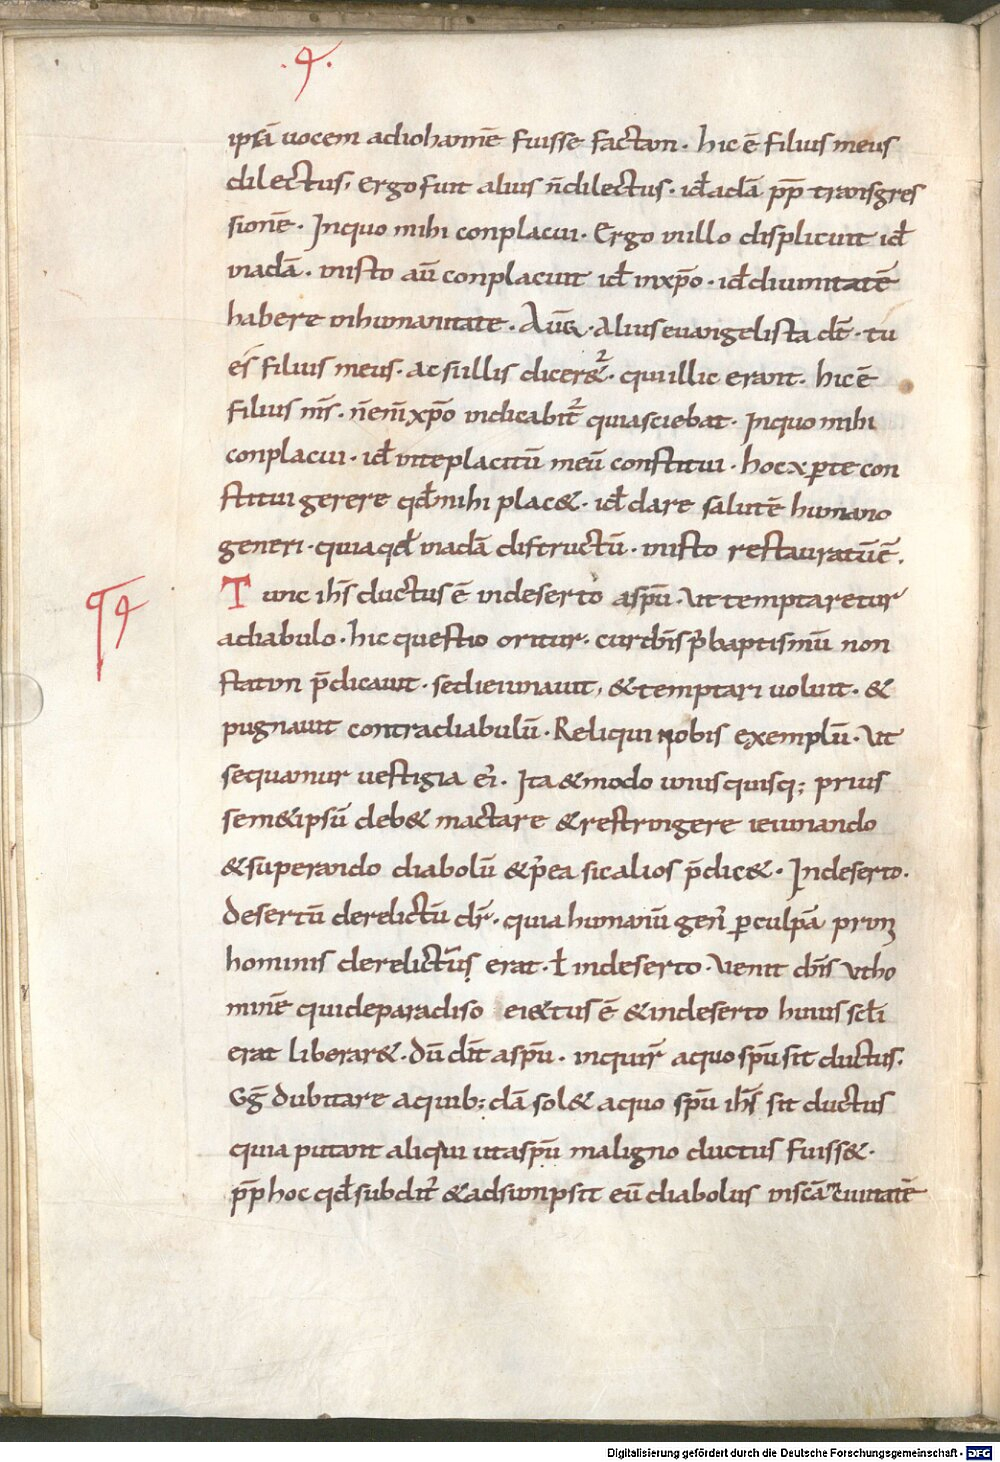 ·q·
ipsā uocem adiohannē fuisse factam· hic ē filius meus
dilectus, ergo fuit alius n̄dilectus· id̄ adā pp̄ transgres
sionē· Inquo mihi conplacui· Ergo inillo displicuit id̄
inadā· inisto aū conplacuit id̄ inxp̄o· id̄ diuinitatē
habere inhumanitate· Alius euangelista dt̄· tu
es filius meus· ac si illis dicer&· qui illic erant· hic ē
filius m̄s· n̄ eni xp̄o indicabit̄ quia sciebat· Inquo mihi
conplacui· id̄ inte placitū meū constitui· hoc exparte con
stitui gerere qd̄ mihi plac&· id̄ dare salutē humano
generi· quia qd̄ inadā distructū· inisto restauratū ē·
Tunc ih̄s ductus ē indeserto asp̄u· Ut temptaretur
adiabulo· hic questio oritur· cur dn̄s p̄ baptismū non
statim p̄dicauit· sed ieiunauit, & temptari uoluit· &
pugnauit contra diabulū· Reliqui nobis exemplū· Ut
sequamur uestigia ei· Ita & modo unusquisq; prius
sem&ipsū deb& mactare & restringere ieiunando
& superando diabolū & p̄ea sic alios p̄dic&· Indeserto·
desertū derelictū dr̄· quia humanū gen̄ p culpā primi
hominis derelictus erat· ł indeserto· Uenit dn̄s ut ho
minē qui deparadiso ei&tus ē & indeserto huius scl̄i
erat liberar&· Dū dn̄t asp̄u· inquir̄ aquo sp̄u sit ductus·
Gḡ dubitare aquib; dā sol& aquo sp̄u ih̄s sit ductus
quia putant aliqui ut asp̄u maligno ductus fuiss&·
pp̄ hoc qd̄ subdit̄ & adsumpsit eū diabolus inscā ciuitatē
Digitalisierung gefördert durch die Deutsche Forschungsgemeinschaft - DFG